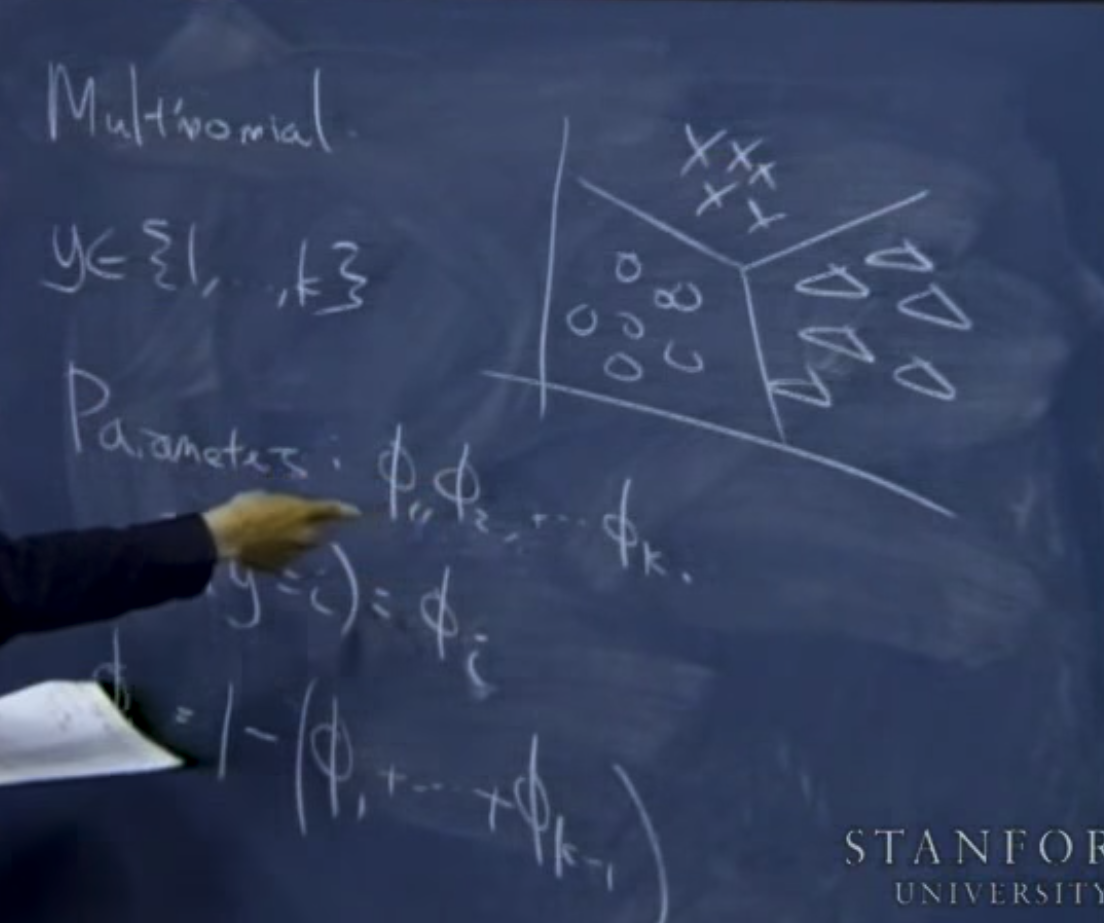 Multinomial.
y∈{1,...,k}
Parameters: ϕ₁, ϕ₂, ... ϕₖ.
y=i) = ϕᵢ
ϕ = 1 - (ϕ₁ + ... + ϕₖ₋₁)
STANFOR
UNIVERSITY